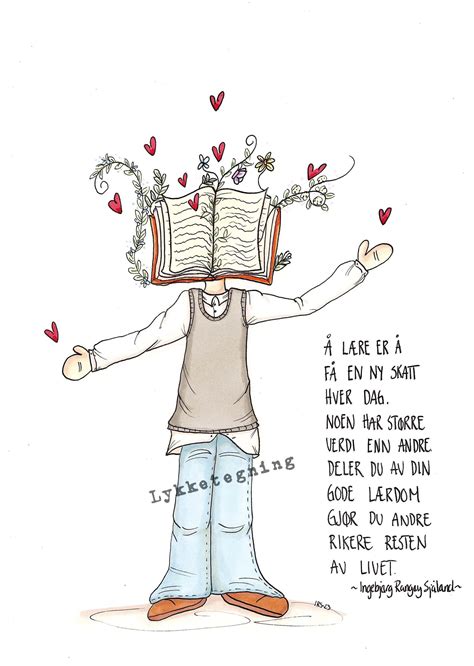 Å LÆRE ER Å
FÅ EN NY SKATT
HVER DAG.
NOEN HAR STØRRE
VERDI ENN ANDRE.
DELER DU AV DIN
GODE LÆRDOM
GJØR DU ANDRE
RIKERE RESTEN
AV LIVET.
~Ingebjørg Rangøy Sjåland~
Lykketegning